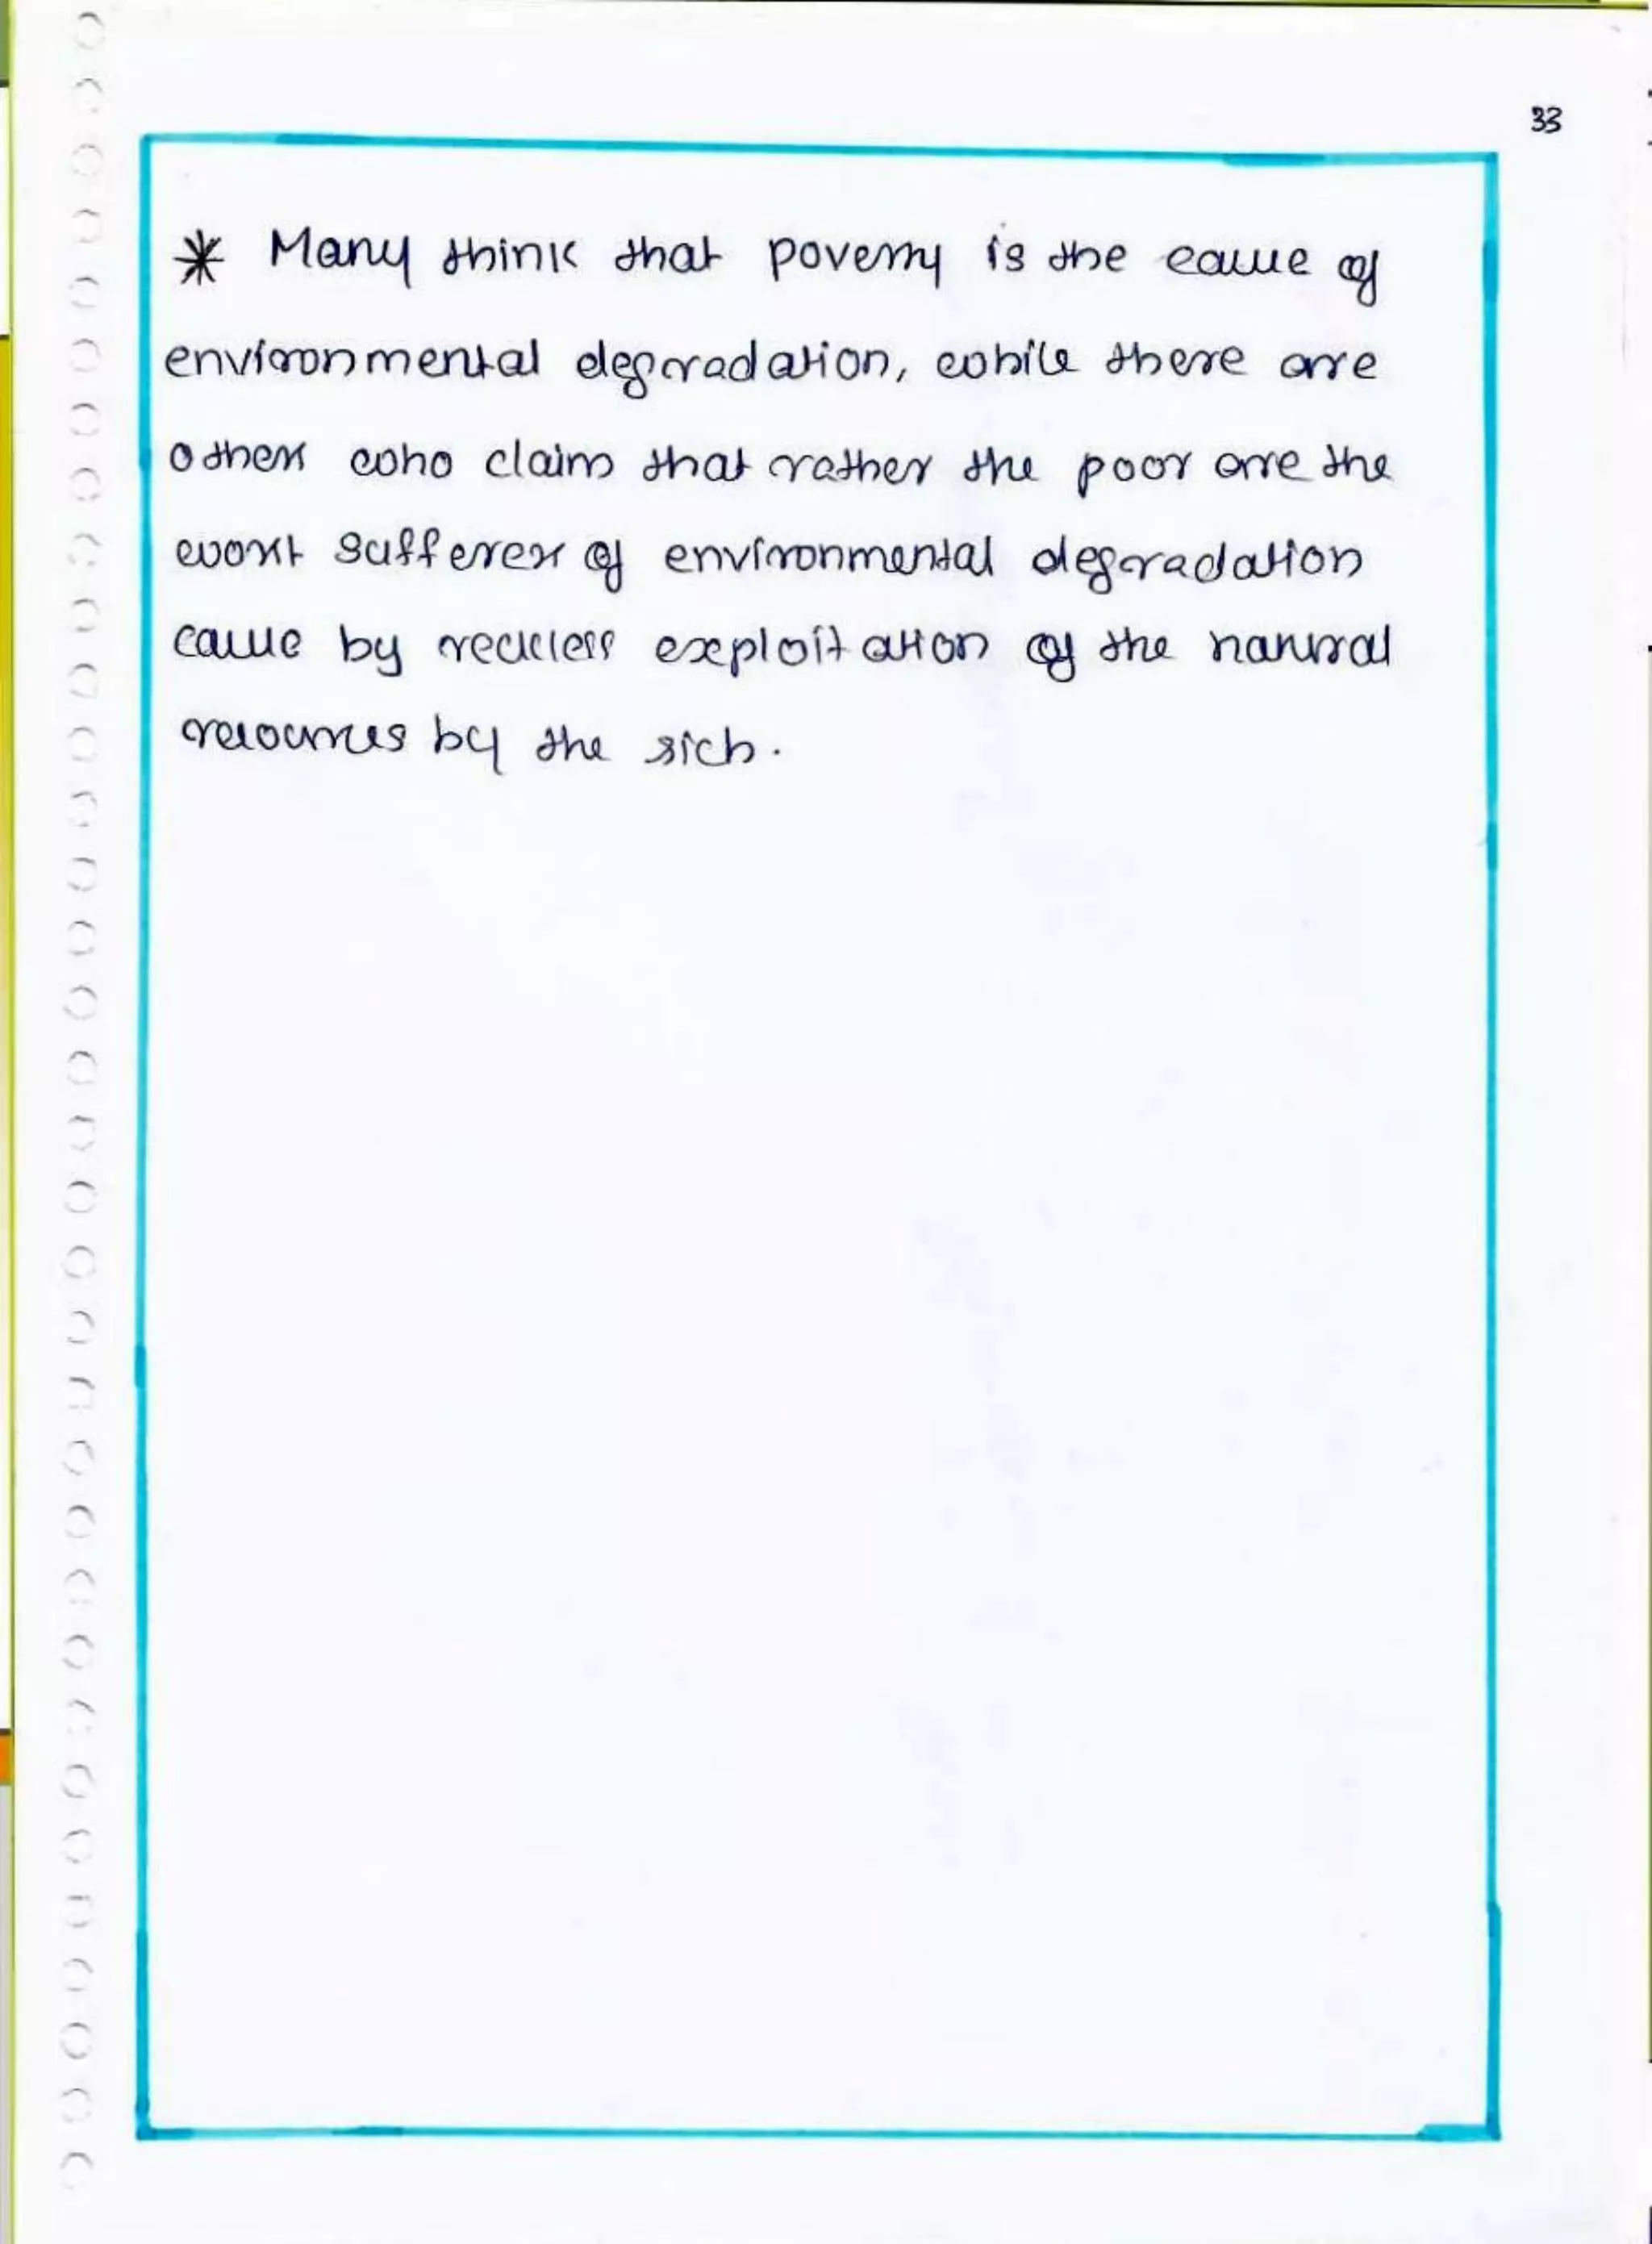 33
* Many think that poverty is the cause of
environmental degradation, while there are
others who claim that rather the poor are the
worst sufferers of environmental degradation
cause by reckless exploitation of the natural
resources by the rich.